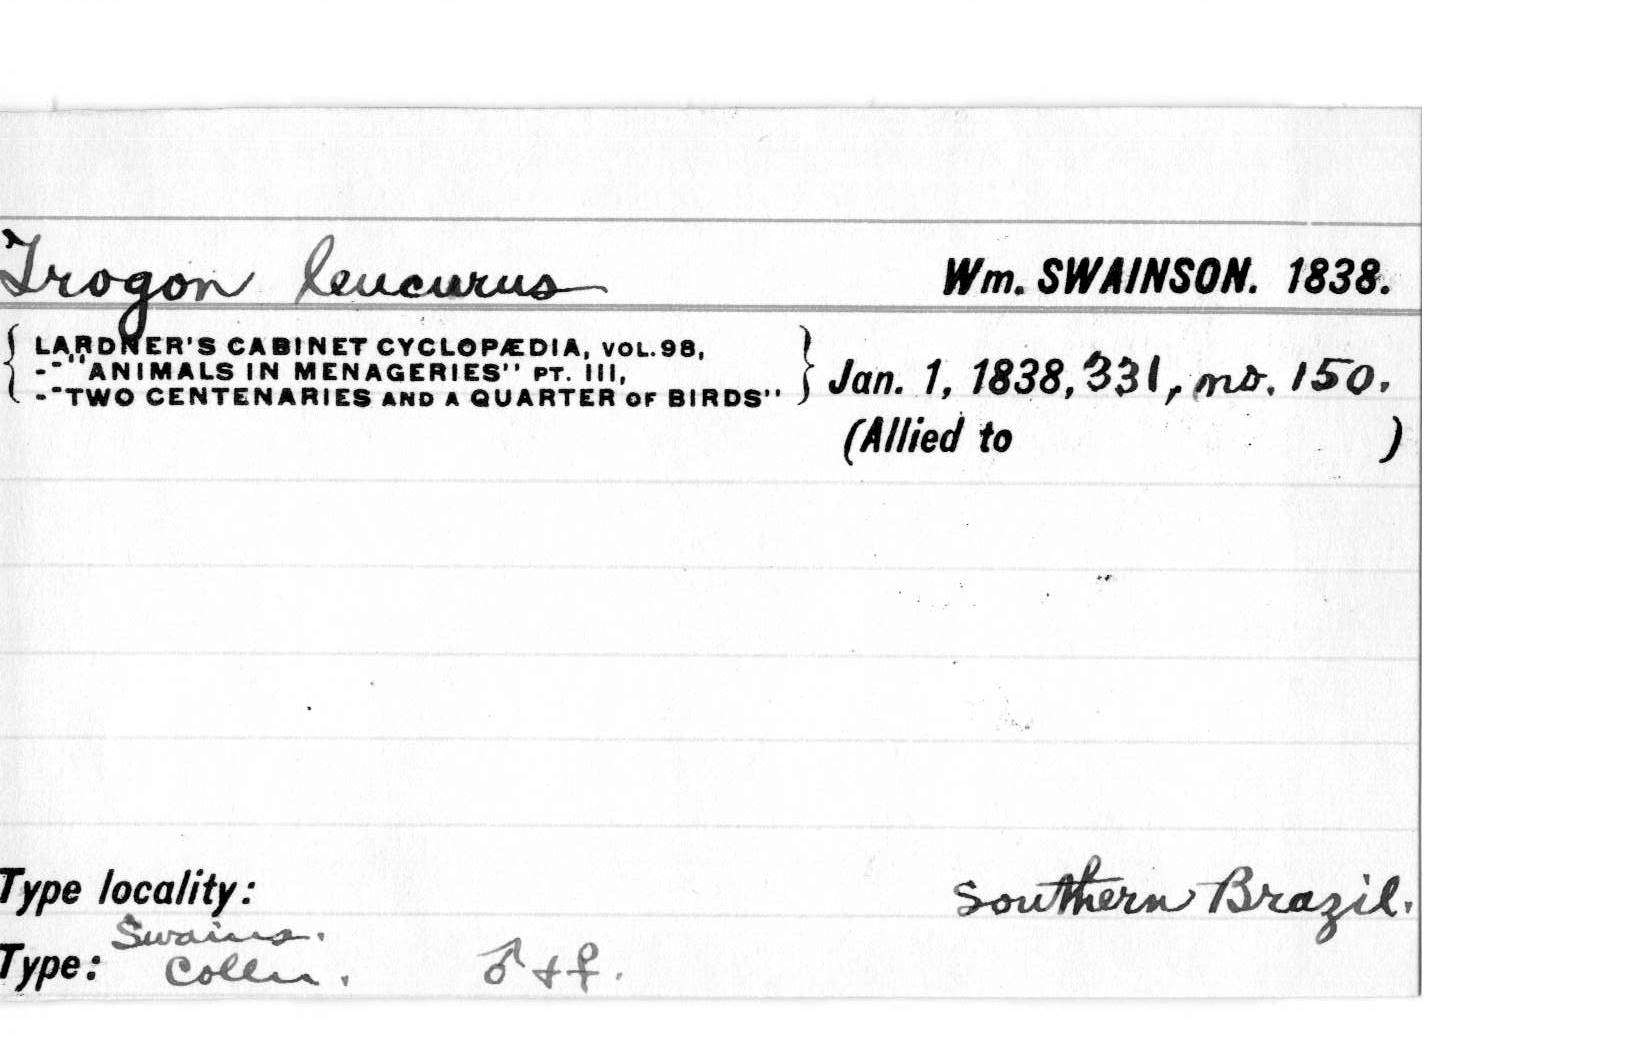 Trogon leucurus Wm. SWAINSON. 1838.
{ LARDNER'S CABINET CYCLOPÆDIA, VOL.98,
-"ANIMALS IN MENAGERIES" PT. III,
-"TWO CENTENARIES AND A QUARTER OF BIRDS" } Jan. 1, 1838, 331, no. 150.
(Allied to )
Type locality: Southern Brazil.
Swains.
Type: Colln. ♂ + ♀.